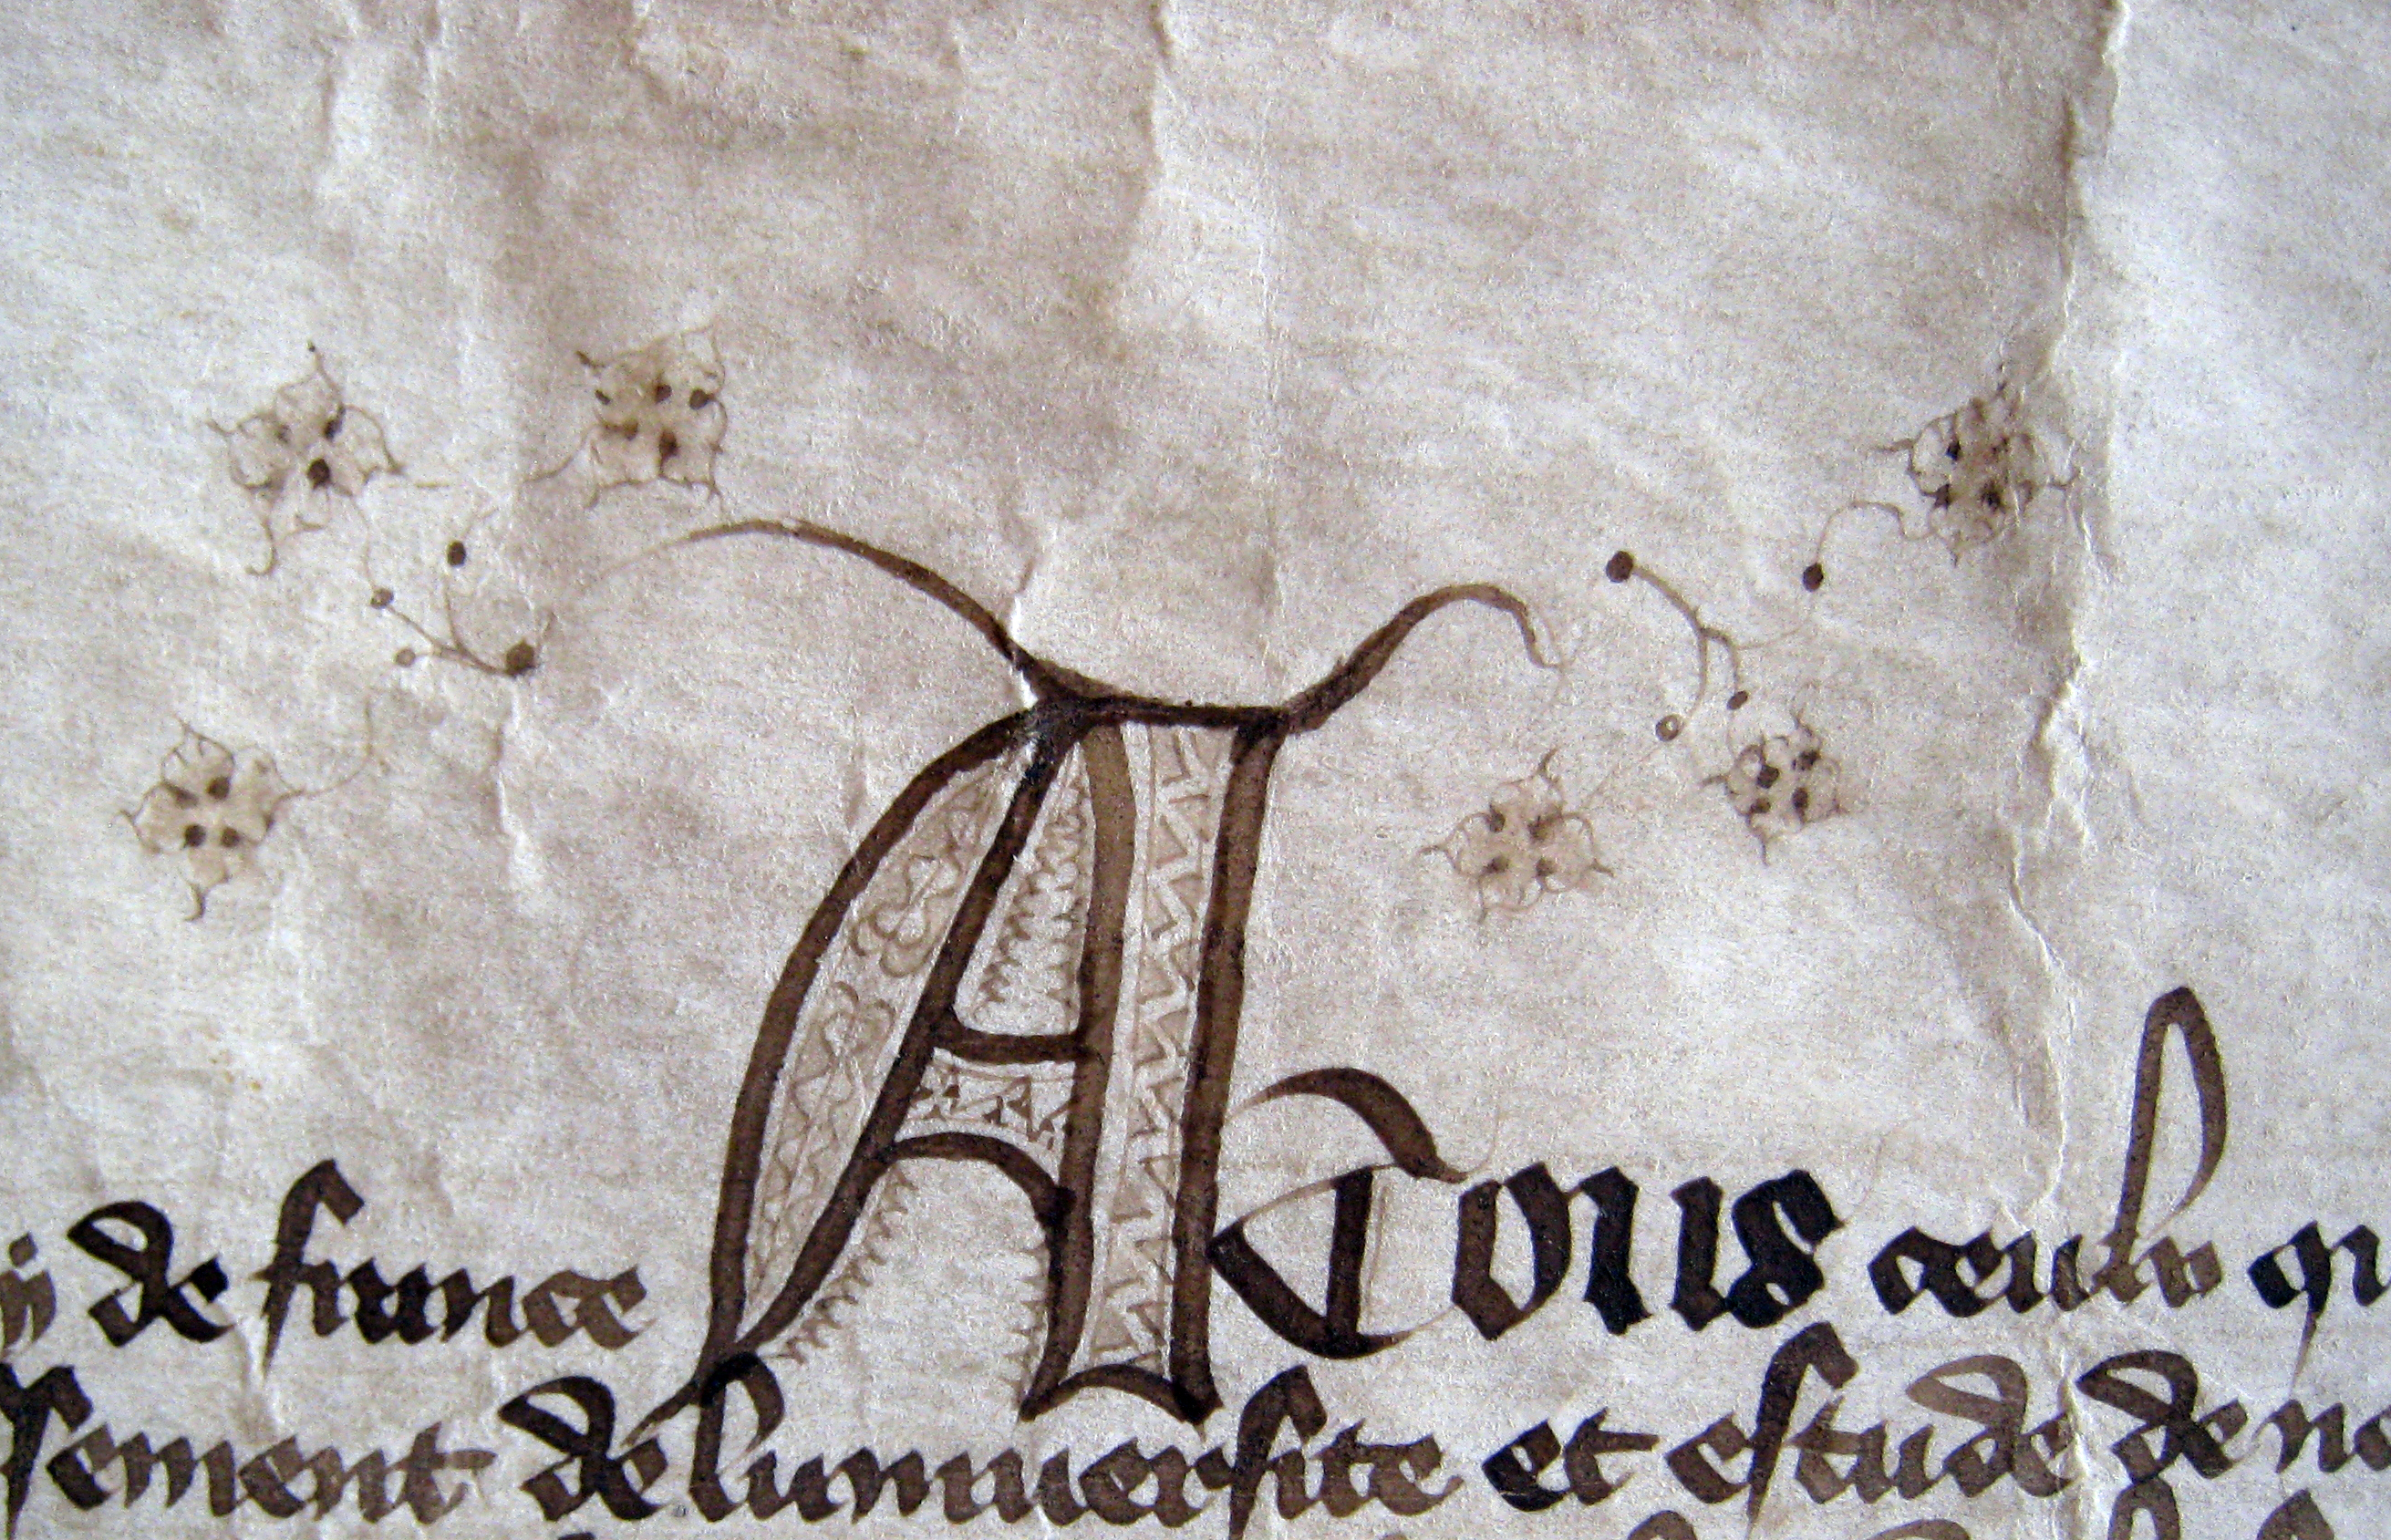 de france A Tous ceulx qi
sement de luniuersite et estude de no